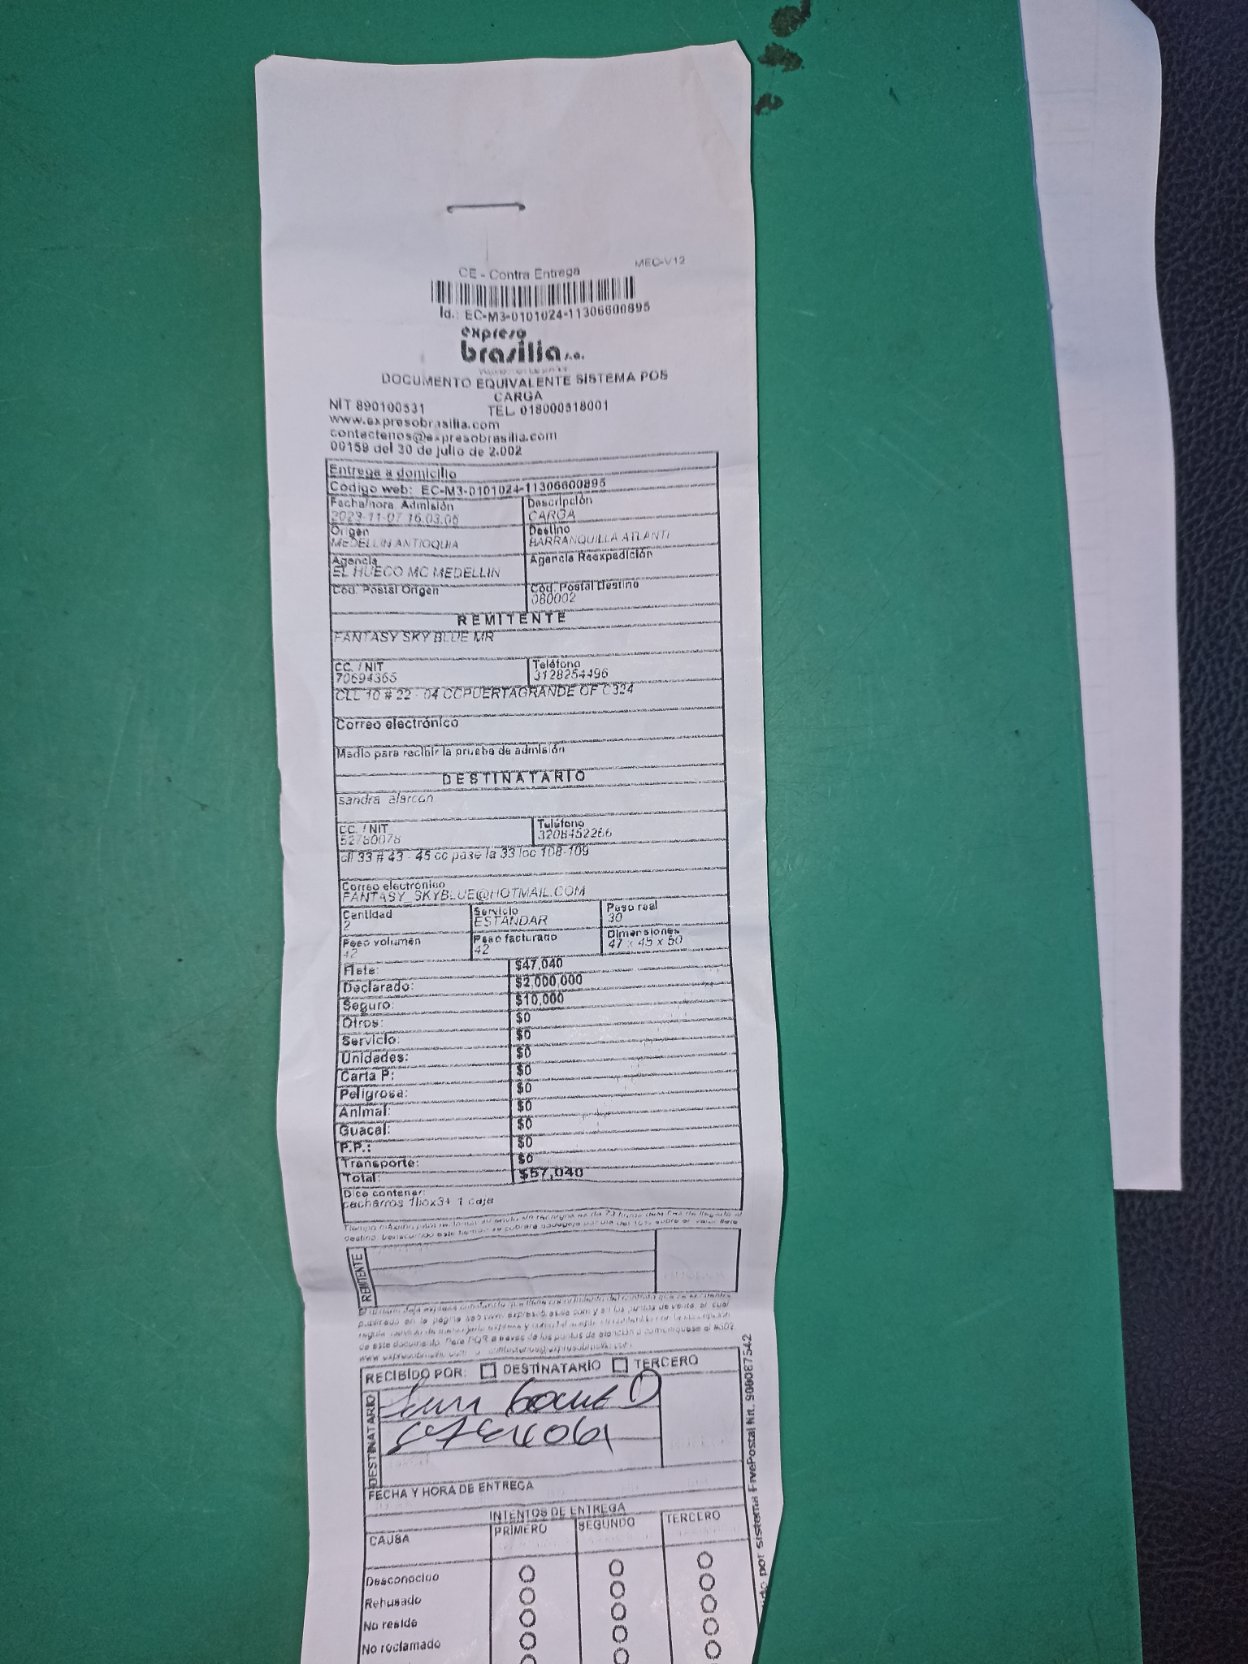 CE - Contra Entrega
MEC-V12
Id.: EC-M3-0101024-11306600895
expreso
brasilia s.a.
DOCUMENTO EQUIVALENTE SISTEMA POS
CARGA
NIT 890100531 TEL. 018000518001
www.expresobrasilia.com
contactenos@expresobrasilia.com
00159 del 30 de julio de 2.002
Entrega a domicilio
Código web: EC-M3-0101024-11306600895
Fecha/hora Admisión Descripción
2023-11-07 16:03:06 CARGA
Origen Destino
MEDELLIN ANTIOQUIA BARRANQUILLA ATLANTI
Agencia Agencia Reexpedición
EL HUECO MC MEDELLIN
Cod. Postal Origen Cód. Postal Destino
080002
REMITENTE
FANTASY SKY BLUE MR
CC. / NIT Teléfono
70694365 3128254496
CLL 10 # 22 - 04 CCPUERTAGRANDE OF C324
Correo electrónico
Medio para recibir la prueba de admisión
DESTINATARIO
sandra alarcon
CC. / NIT Teléfono
52780078 3208452266
cll 33 # 43 - 45 cc pase la 33 loc 108-109
Correo electronico
FANTASY_SKYBLUE@HOTMAIL.COM
Cantidad Servicio Peso real
2 ESTANDAR 30
Peso volumen Peso facturado Dimensiones
42 42 47 x 45 x 50
Flete: $47,040
Declarado: $2,000,000
Seguro: $10,000
Otros: $0
Servicio: $0
Unidades: $0
Carta P: $0
Peligrosa: $0
Animal: $0
Guacal: $0
P.P.: $0
Transporte: $0
Total: $57,040
Dice contener:
cacharros 1 caja
REMITENTE
RECIBIDO POR: DESTINATARIO TERCERO
DESTINATARIO
FECHA Y HORA DE ENTREGA
INTENTOS DE ENTREGA
CAUSA PRIMERO SEGUNDO TERCERO
Desconocido
Rehusado
No reside
No reclamado
por sistema FivePostal Nit. 900087542